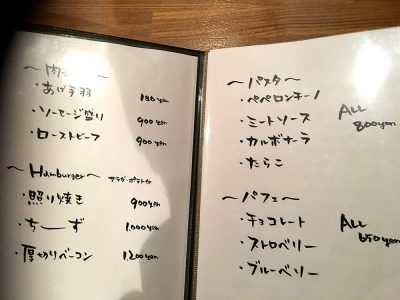 ～肉
・あげ手羽 180yen
・ソーセージ盛り 900yen
・ローストビーフ 900yen
～Hamburger～ サラダ・ポテト付
・照り焼き 900yen
・ちーず 1,000yen
・厚切りベーコン 1,200yen
～パスタ～
・ペペロンチーノ
・ミートソース
・カルボナーラ
・たらこ
ALL
800yen
～パフェ～
・チョコレート
・ストロベリー
・ブルーベリー
ALL
650yen